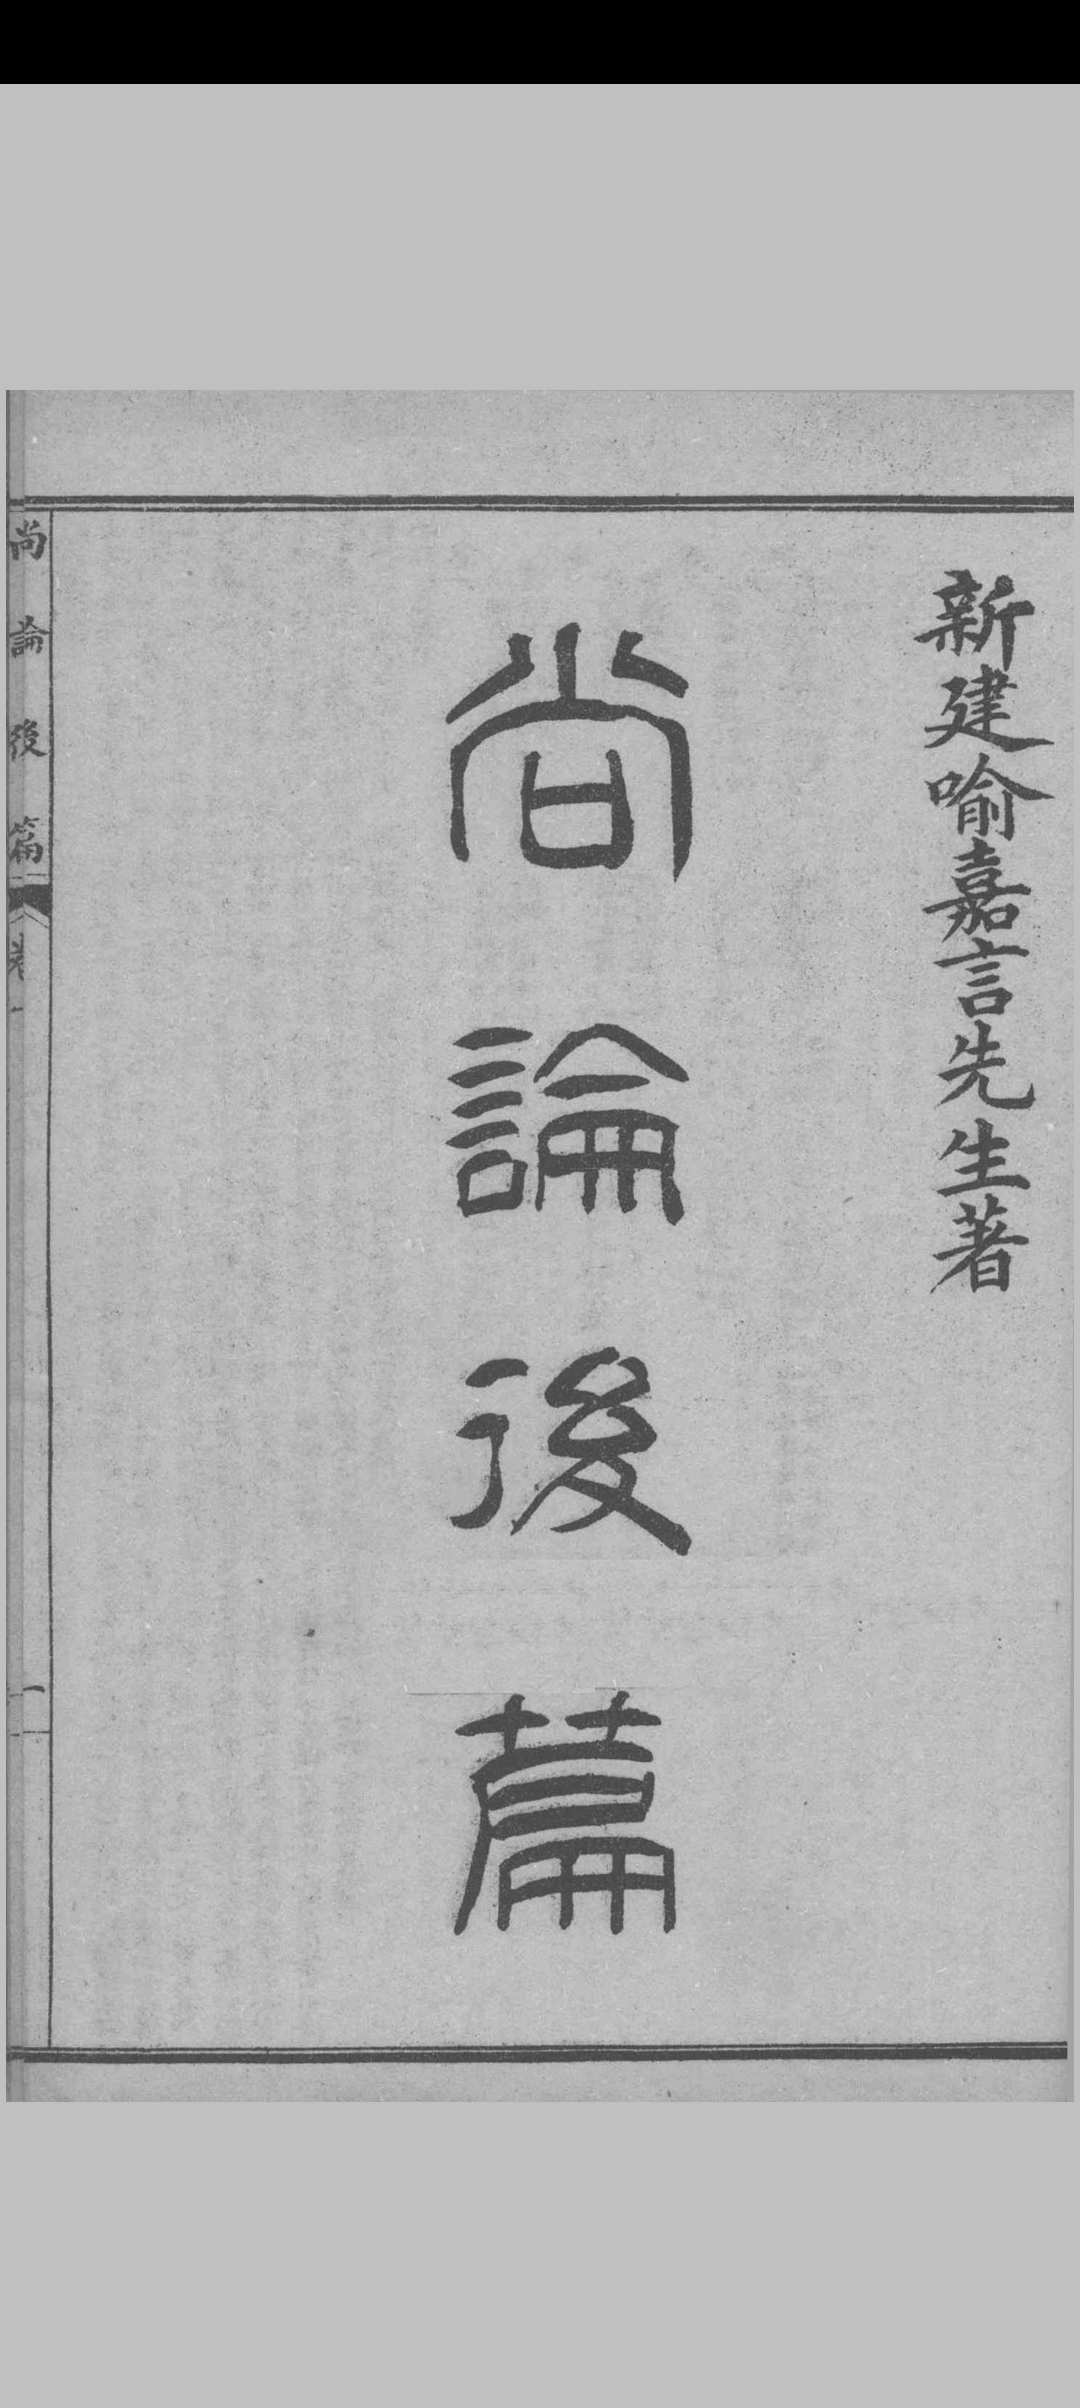 新建喻嘉言先生著
尚論後篇
尚論後篇 卷一 一